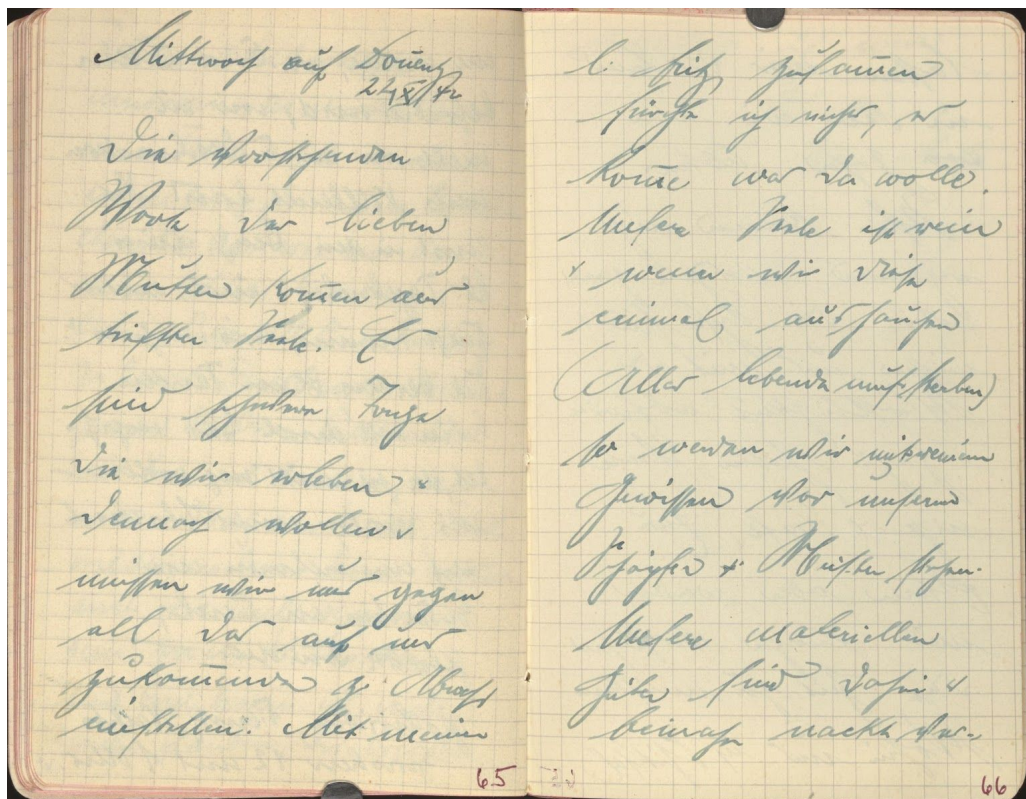 Mittwoch auf Donnerst
22/XI/42
Die vorstehenden
Worte der lieben
Mutter kom̅en aus
tiefster Seele. Es
sind schwere Tage
die wir erleben &
dennoch wollen &
müssen wir uns gegen
all das auf uns
zukom̅ende z. Abwehr
einstellen. Mit meiner
l. Fritz, zusam̅en
fürchte ich nichts, es
kom̅e was da wolle.
Unsere Seele ist rein
& wenn wir diese
einmal aushauchen
(Alles lebende muss sterben)
so werden wir mit reinem
Gewissen vor unserem
Schöpfer & Meister stehen.
Unsere materiellen
Güter sind dahin &
beinahe nackt ver-
65
66